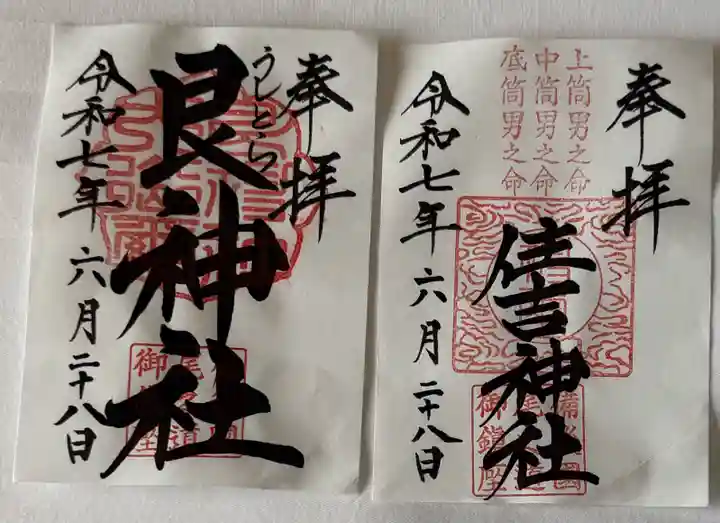 奉拝
うしとら
艮神社
令和七年 六月二十八日
奉拝
上筒男之命
中筒男之命
底筒男之命
住吉神社
備後國
尾道
御鎮座
令和七年 六月二十八日